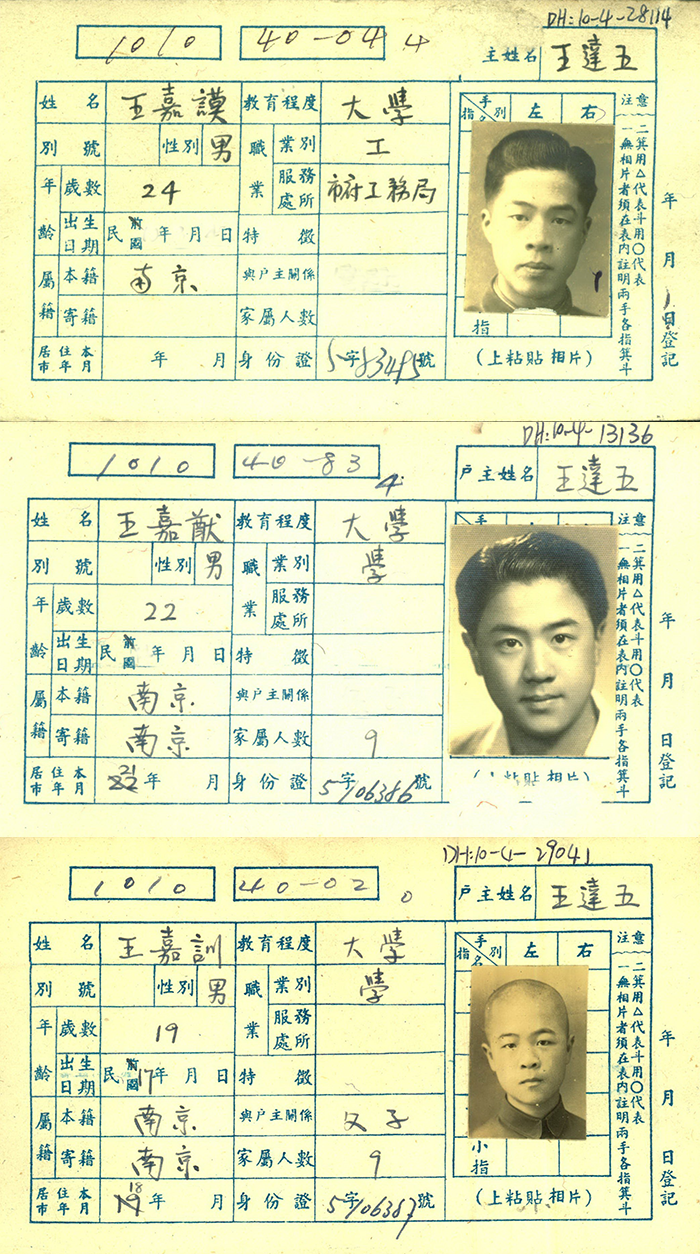 DH:10-4-28114
1010 40-04 4
主姓名 王達五
姓名 王嘉謨 教育程度 大學
別號 性別 男 職業 業別 工
年齡 歲數 24 服務處所 市府工務局
出生日期 民前國 年 月 日 特徵
屬籍 本籍 南京 與戶主關係
寄籍 家屬人數
居住本市年月 年 月 身份證 5字83495號
手別 指名 左 右
指
(上粘貼相片)
注意
一無相片者須在表內註明兩手各指箕斗
二箕用△代表斗用○代表
年 月 日登記
DH:10-4-13136
1010 40-83 4
戶主姓名 王達五
姓名 王嘉猷 教育程度 大學
別號 性別 男 職業 業別 學
年齡 歲數 22 服務處所
出生日期 民前國 年 月 日 特徵
屬籍 本籍 南京 與戶主關係
寄籍 南京 家屬人數 9
居住本市年月 21 22 年 月 身份證 5字106386號
手
(上粘貼相片)
注意
一無相片者須在表內註明兩手各指箕斗
二箕用△代表斗用○代表
年 月 日登記
DH:10-4-29041
1010 40-02 0
戶主姓名 王達五
姓名 王嘉訓 教育程度 大學
別號 性別 男 職業 業別 學
年齡 歲數 19 服務處所
出生日期 民前國 17年 月 日 特徵
屬籍 本籍 南京 與戶主關係 父子
寄籍 南京 家屬人數 9
居住本市年月 18 19 年 月 身份證 5字106387號
手別 指名 左 右
小指
(上粘貼相片)
注意
一無相片者須在表內註明兩手各指箕斗
二箕用△代表斗用○代表
年 月 日登記